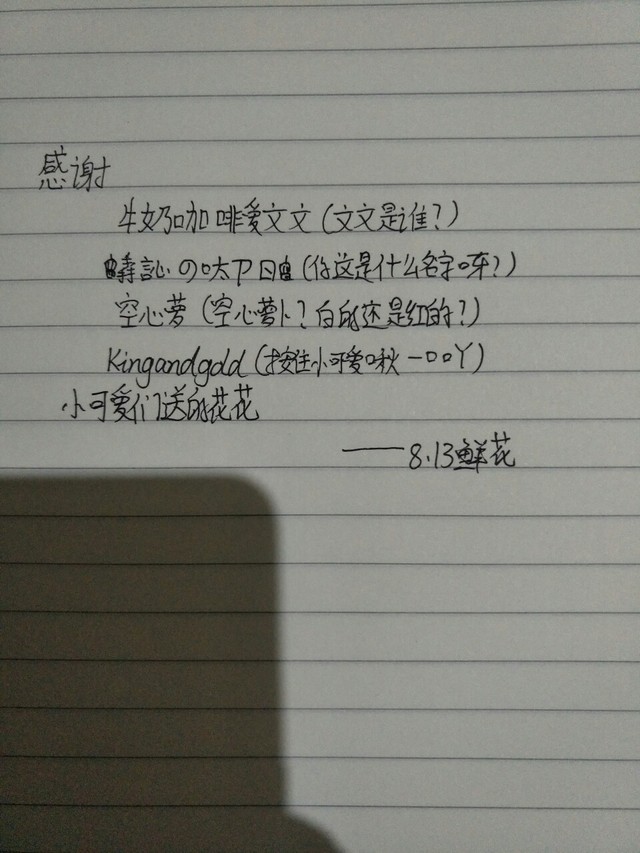 感谢
牛奶咖啡爱文文(文文是谁?)
の呔卩(你这是什么名字呀?)
空心萝(空心萝卜?白的还是红的?)
Kingandgdd(按住小可爱啾一口口丫)
小可爱们送的花花
——8.13鲜花